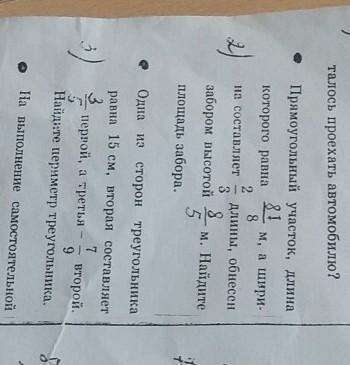 талось проехать автомобилю?
• Прямоугольный участок, длина
которого равна 81/8 м, а шири-
2) на составляет 2/3 длины, обнесен
забором высотой 8/5 м. Найдите
площадь забора.
• Одна из сторон треугольника
равна 15 см, вторая составляет
3) 3/5 первой, а третья – 7/9 второй.
Найдите периметр треугольника.
• На выполнение самостоятельной